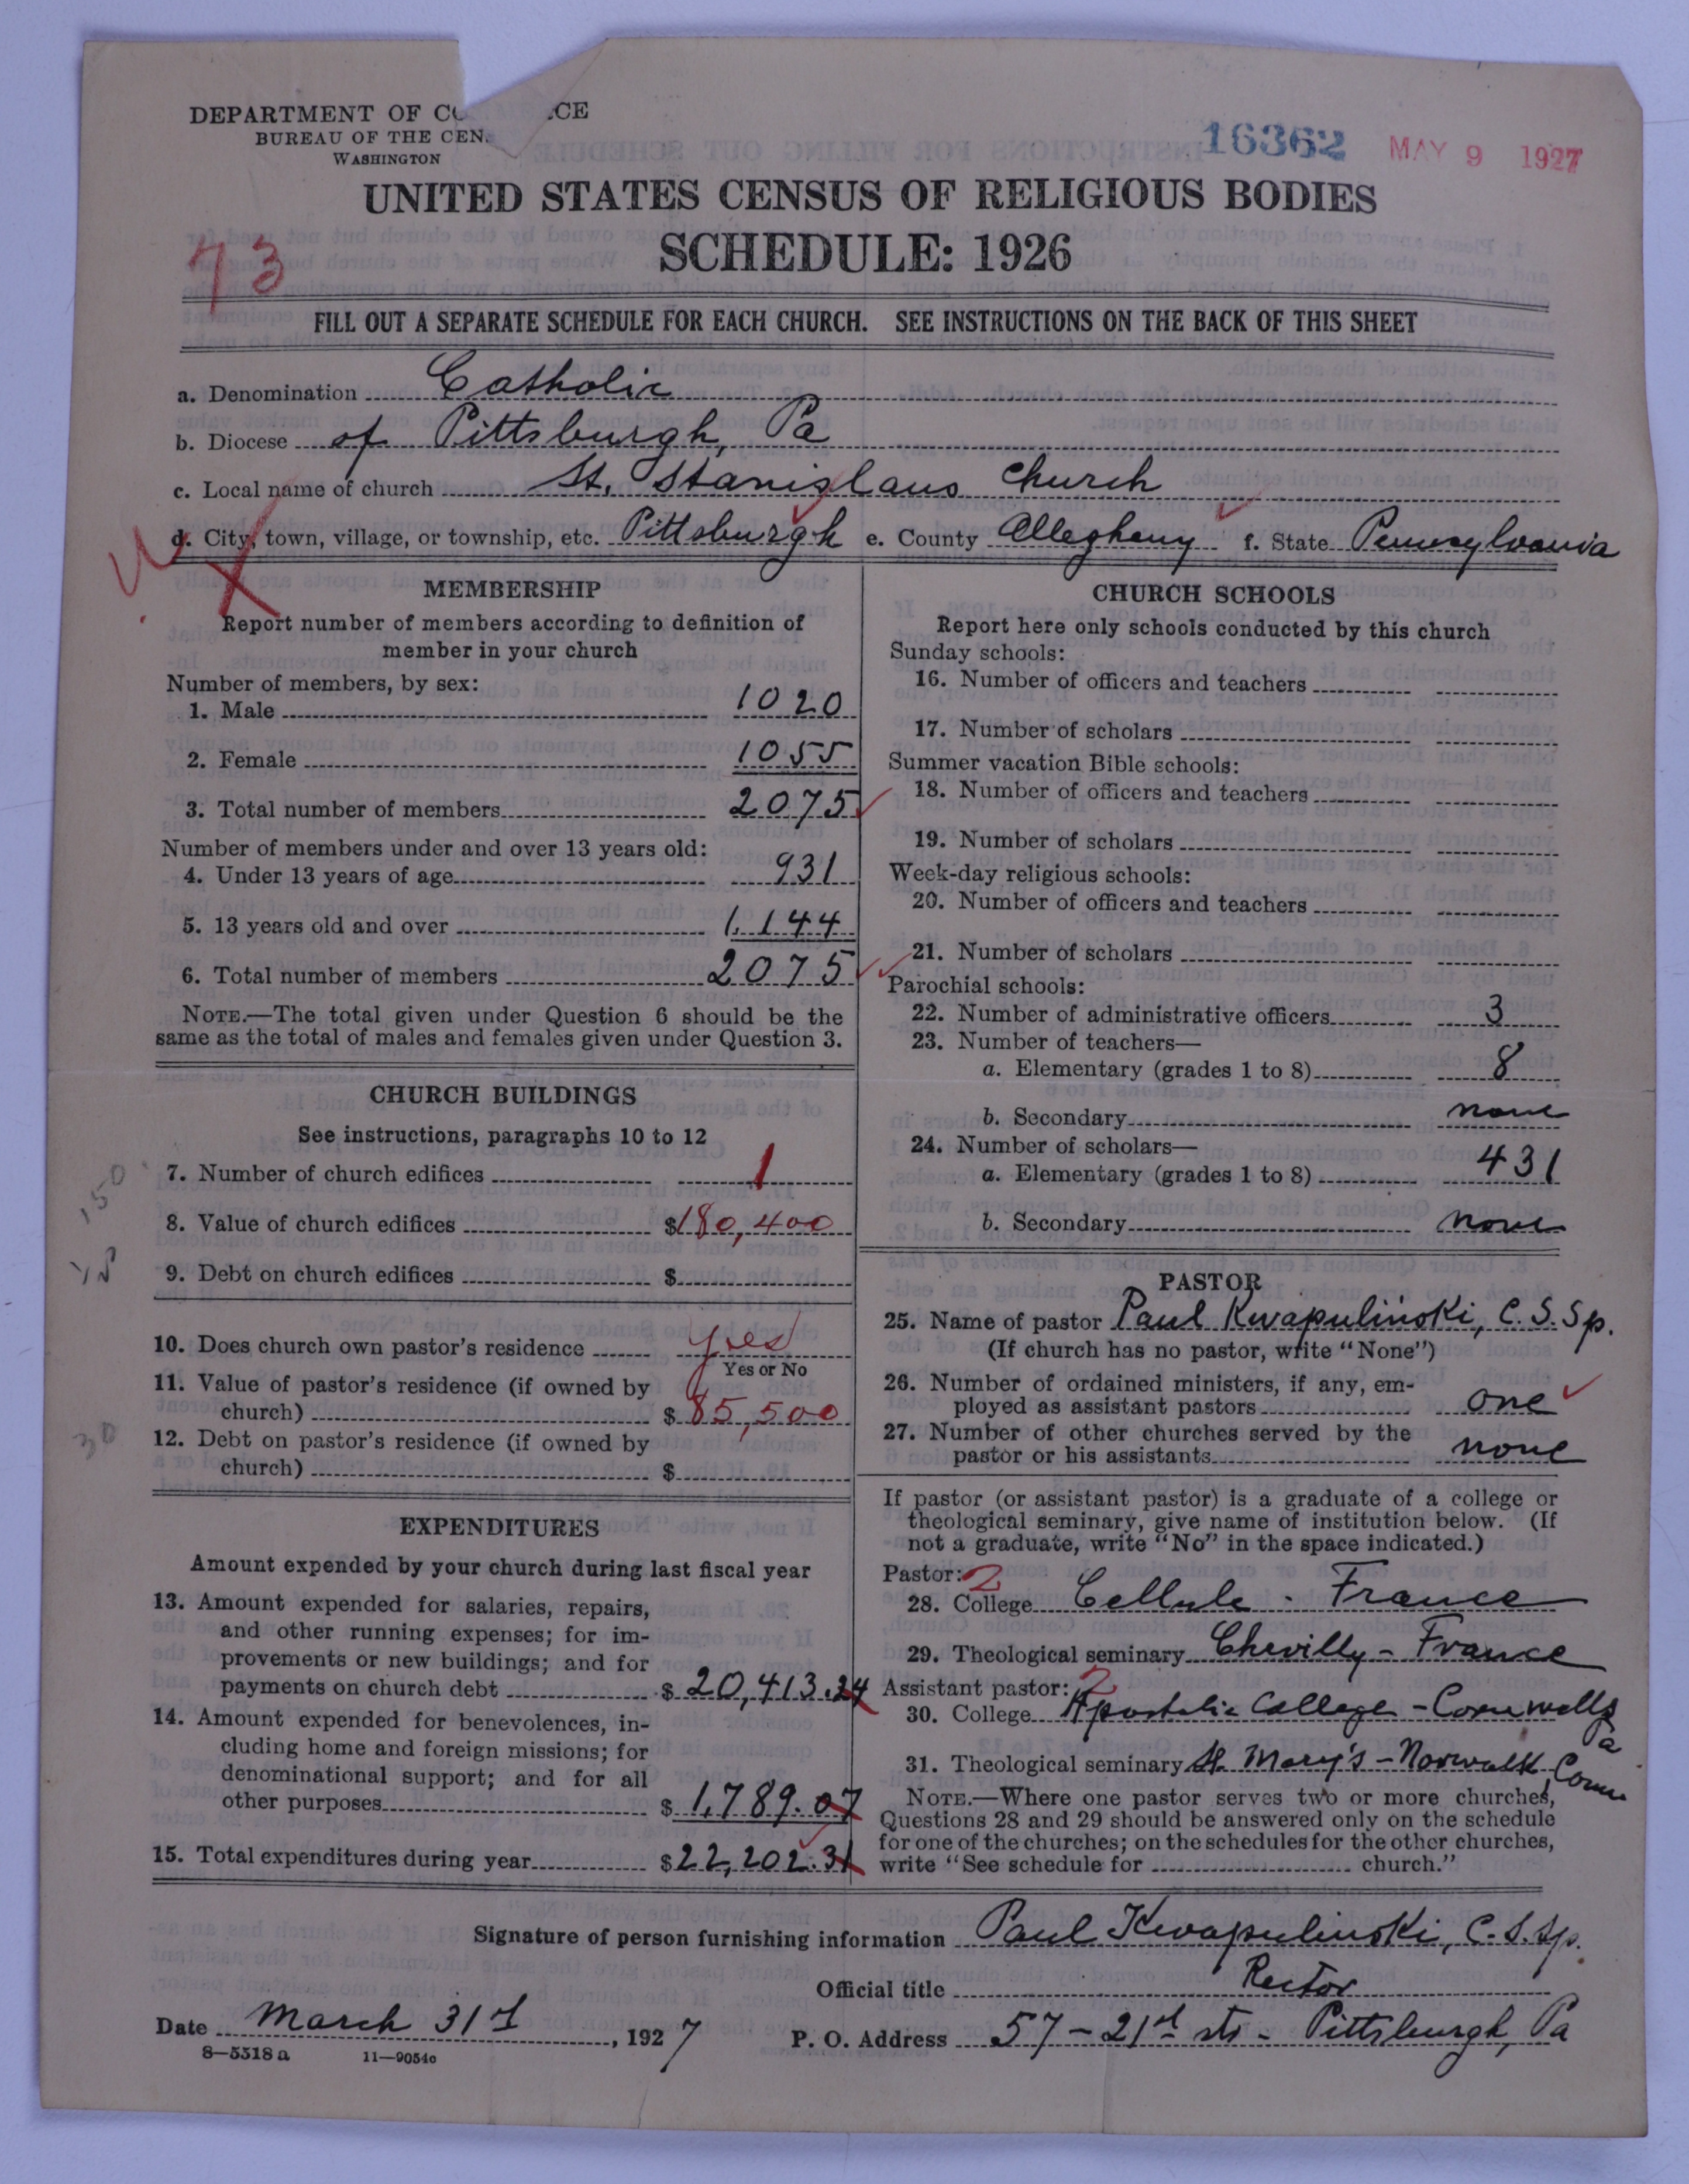 DEPARTMENT OF CO CE
BUREAU OF THE CEN.
WASHINGTON
16362 MAY 9 1927
UNITED STATES CENSUS OF RELIGIOUS BODIES
SCHEDULE: 1926
73
FILL OUT A SEPARATE SCHEDULE FOR EACH CHURCH. SEE INSTRUCTIONS ON THE BACK OF THIS SHEET
a. Denomination Catholic
b. Diocese of Pittsburgh, Pa
c. Local name of church St. Stanislaus Church
d. City, town, village, or township, etc. Pittsburgh e. County Allegheny f. State Pennsylvania
MEMBERSHIP
Report number of members according to definition of
member in your church
Number of members, by sex:
1. Male 1020
2. Female 1055
3. Total number of members 2075
Number of members under and over 13 years old:
4. Under 13 years of age 931
5. 13 years old and over 1,144
6. Total number of members 2075
NOTE.—The total given under Question 6 should be the
same as the total of males and females given under Question 3.
CHURCH BUILDINGS
See instructions, paragraphs 10 to 12
7. Number of church edifices 1
150
8. Value of church edifices $180,400
9. Debt on church edifices $
10. Does church own pastor's residence yes
Yes or No
11. Value of pastor's residence (if owned by
church) $85,500
30
12. Debt on pastor's residence (if owned by
church) $
EXPENDITURES
Amount expended by your church during last fiscal year
13. Amount expended for salaries, repairs,
and other running expenses; for im-
provements or new buildings; and for
payments on church debt $20,413.24
14. Amount expended for benevolences, in-
cluding home and foreign missions; for
denominational support; and for all
other purposes $1,789.07
15. Total expenditures during year $22,202.31
CHURCH SCHOOLS
Report here only schools conducted by this church
Sunday schools:
16. Number of officers and teachers
17. Number of scholars
Summer vacation Bible schools:
18. Number of officers and teachers
19. Number of scholars
Week-day religious schools:
20. Number of officers and teachers
21. Number of scholars
Parochial schools:
22. Number of administrative officers 3
23. Number of teachers—
a. Elementary (grades 1 to 8) 8
b. Secondary none
24. Number of scholars—
a. Elementary (grades 1 to 8) 431
b. Secondary none
PASTOR
25. Name of pastor Paul Kwapulinski, C.S.Sp.
(If church has no pastor, write "None")
26. Number of ordained ministers, if any, em-
ployed as assistant pastors one
27. Number of other churches served by the
pastor or his assistants none
If pastor (or assistant pastor) is a graduate of a college or
theological seminary, give name of institution below. (If
not a graduate, write "No" in the space indicated.)
Pastor: 2
28. College Cellule - France
29. Theological seminary Chevilly - France
Assistant pastor: 2
30. College Apostolic College - Cornwells Pa
31. Theological seminary St. Mary's - Norwalk, Conn
NOTE.—Where one pastor serves two or more churches,
Questions 28 and 29 should be answered only on the schedule
for one of the churches; on the schedules for the other churches,
write "See schedule for church."
Signature of person furnishing information Paul Kwapulinski, C.S.Sp.
Official title Rector
Date March 31st, 1927 P. O. Address 57 - 21st st. - Pittsburgh, Pa
8—5318a 11—9054c